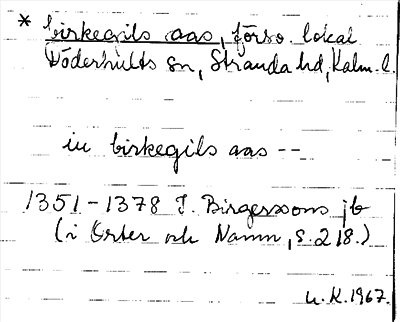 * birkegils aas, försv. lokal
Döderhults sn, Stranda hd, Kalm. l.
in birkegils aas --
1351-1378 J. Birgerssons jb
(i Orter och Namn, s. 218.)
U.K. 1967.